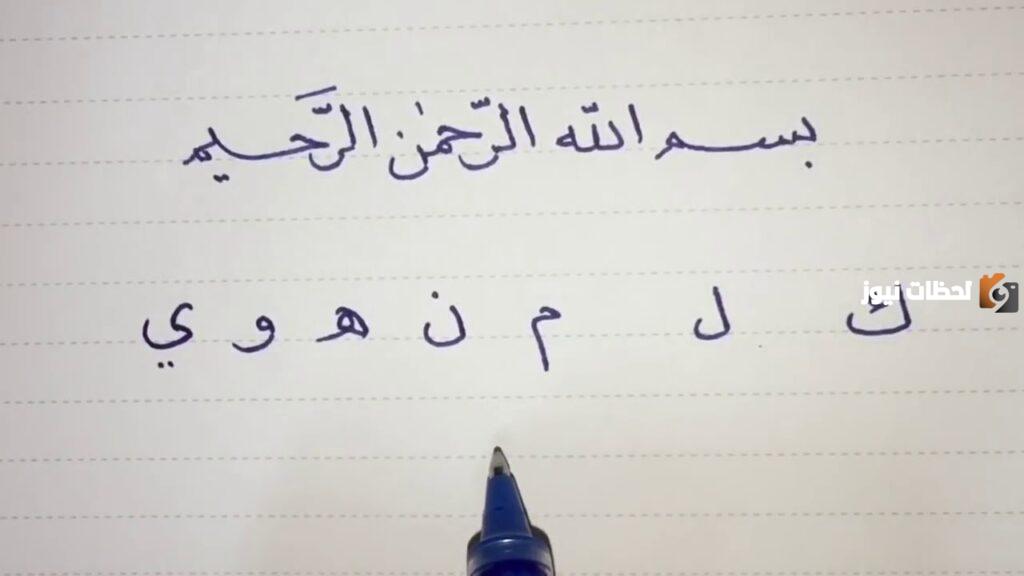 بسم الله الرّحمٰن الرَّحيم
ك ل م ن هـ و ي
لحظات نيوز